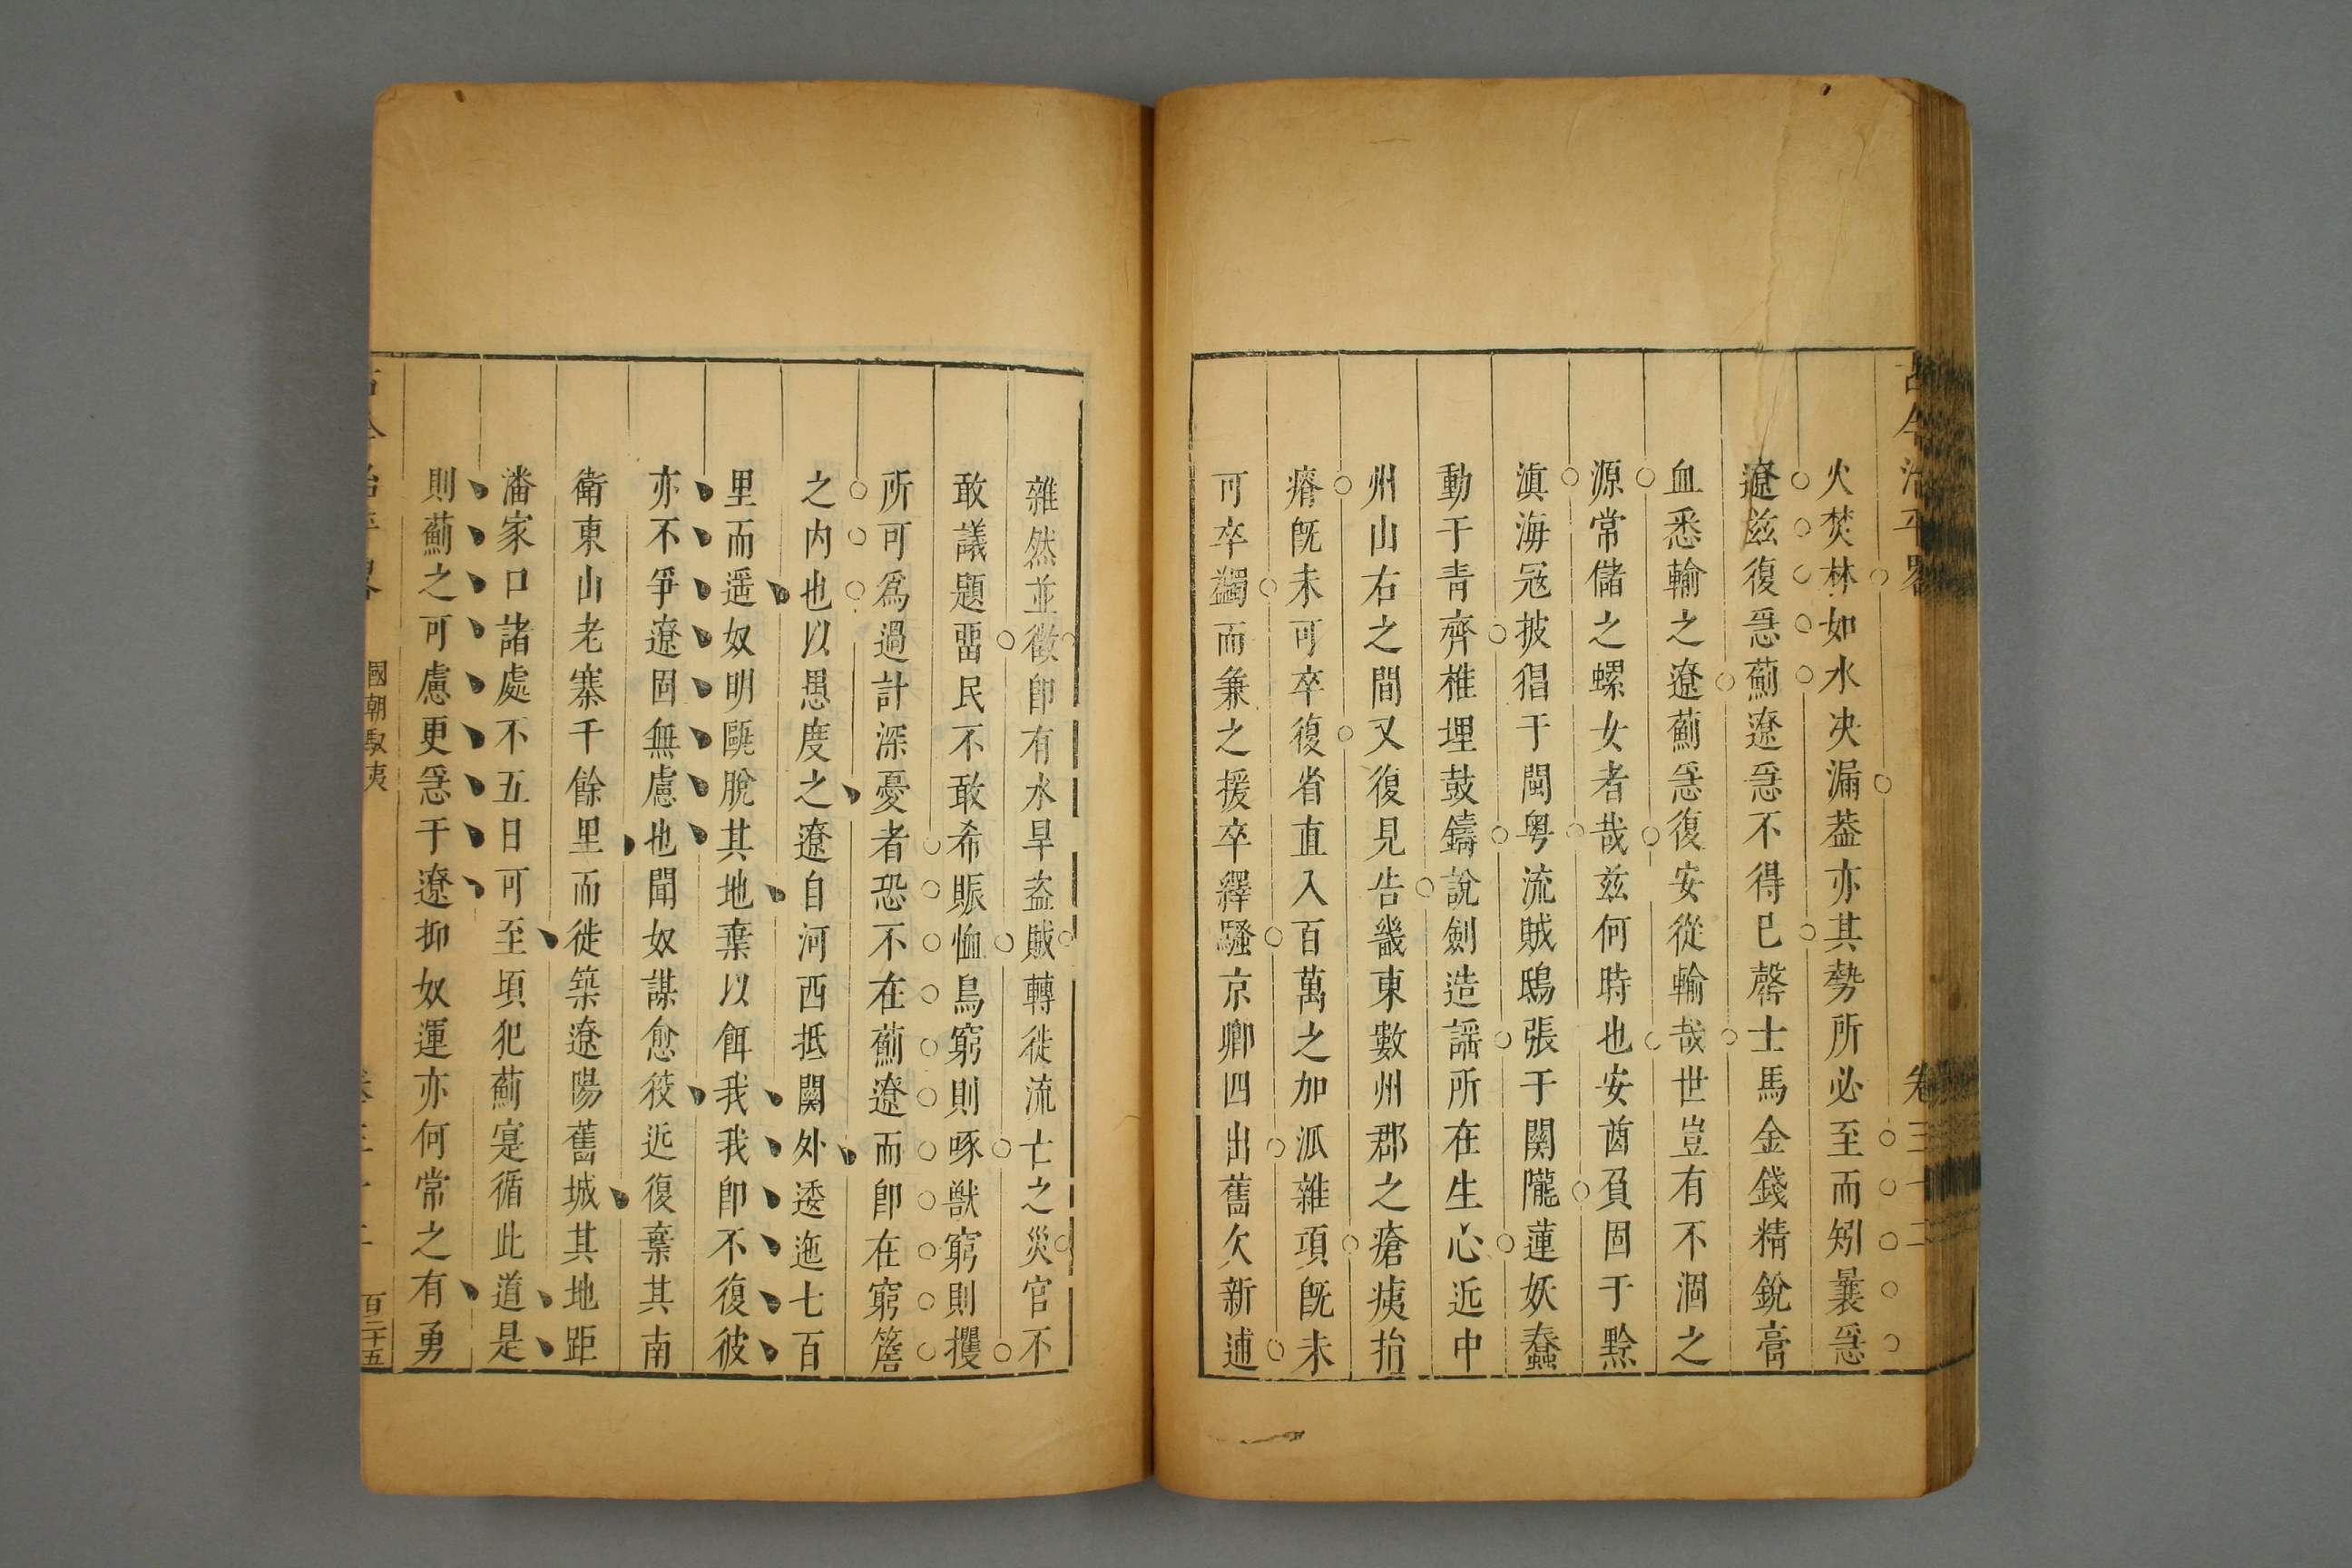 古今治平畧 卷三十二
火焚林如水决漏葢亦其勢所必至而矧曩惡
遼兹復惡薊遼惡不得已罄士馬金錢精銳膏
血悉輸之遼薊惡復安從輸哉世豈有不涸之
源常儲之螺女者哉兹何時也安酋負固于黔
滇海冦披猖于閩粤流賊鴟張于關隴蓮妖蠢
動于青齊椎埋鼓鑄說劍造謡所在生心近中
州山右之間又復見告畿東數州郡之瘡痍抬
瘠旣未可卒復省直入百萬之加派雜項旣未
可卒蠲而兼之援卒繹騷京卿四出舊欠新逋
雜然並徵卽有水旱盗賊轉徙流亡之災官不
敢議題畱民不敢希賑恤鳥窮則啄獸窮則攫
所可爲過計深憂者恐不在薊遼而卽在窮簷
之内也以愚度之遼自河西抵關外逶迤七百
里而遥奴明甌脫其地棄以餌我我卽不復彼
亦不爭遼固無慮也聞奴謀愈狡近復棄其南
衛東山老寨千餘里而徙築遼陽舊城其地距
潘家口諸處不五日可至頃犯薊寔循此道是
則薊之可慮更惡于遼抑奴運亦何常之有勇
國朝馭夷 百二十五